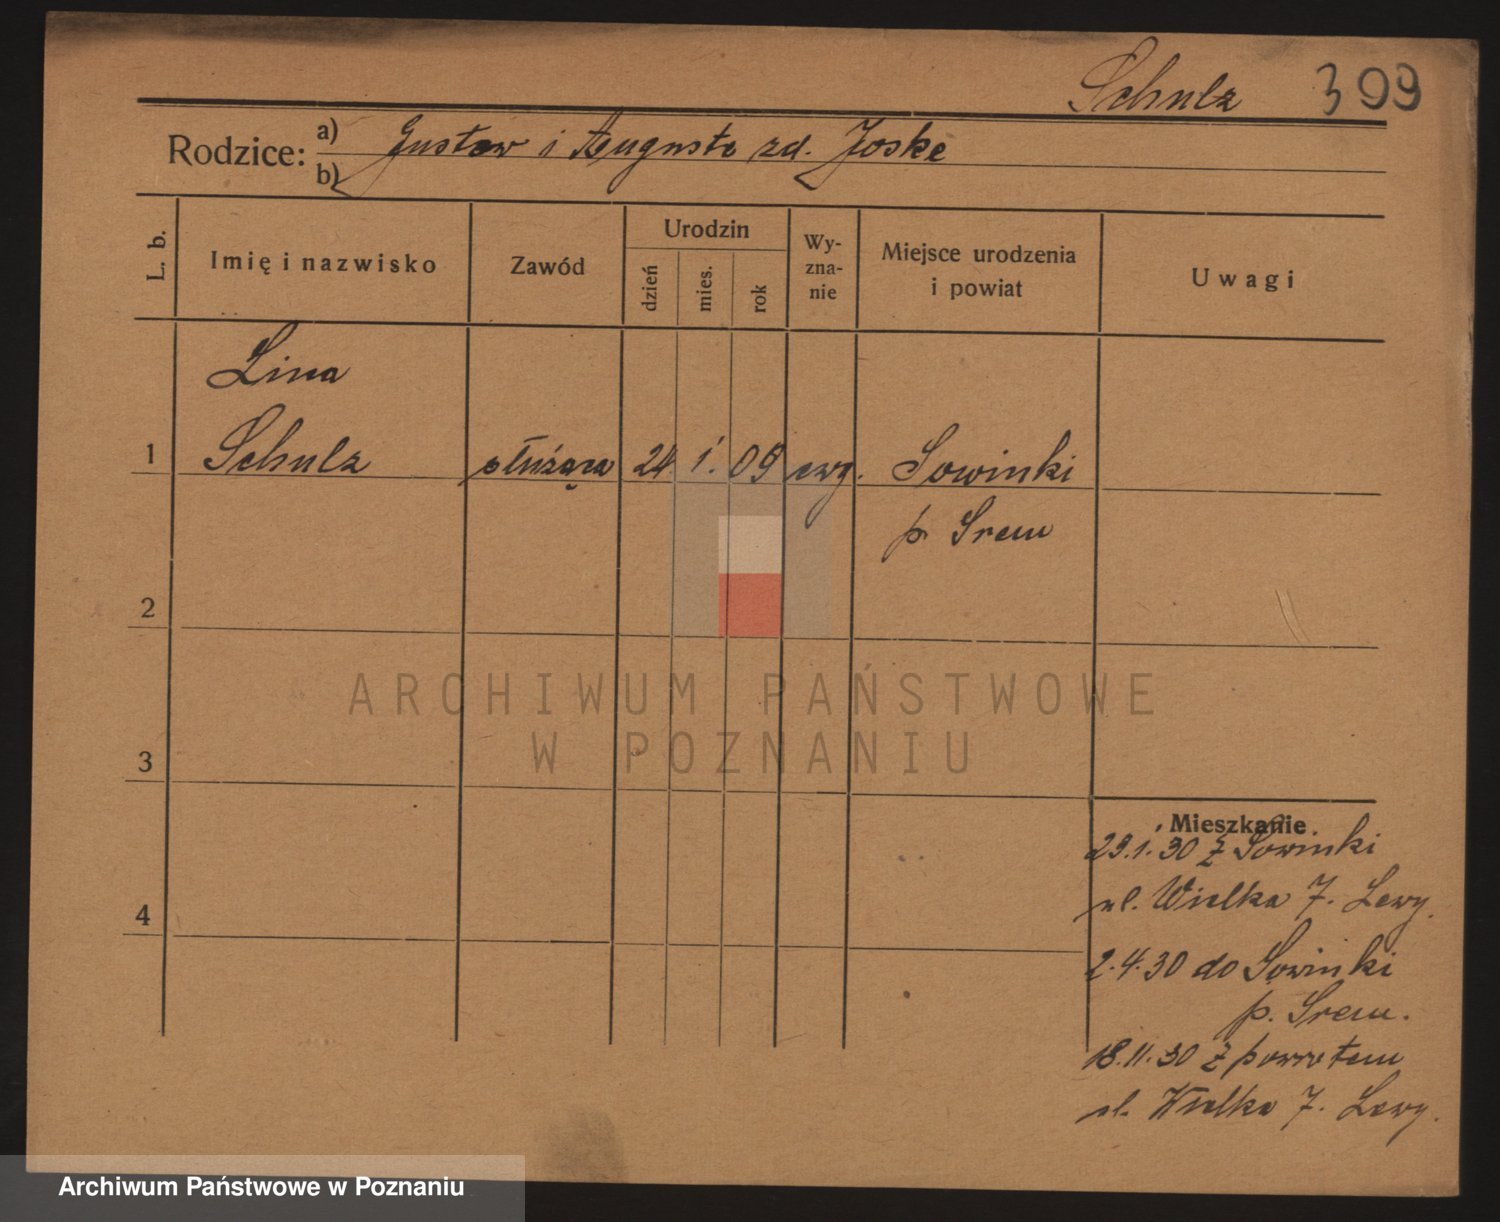 Schulz 399
Rodzice: a) Gustaw i Augusta zd. Joske
b)
L. b.
Imię i nazwisko
Zawód
Urodzin
dzień
mies.
rok
Wy-
zna-
nie
Miejsce urodzenia
i powiat
Uwagi
Lina
1 Schulz służąca 24. 1. 09 ewg. Sowinki
p. Srem
2
ARCHIWUM PAŃSTWOWE
W POZNANIU
3
Mieszkanie
29.1.30 z Sowinki
ul. Wielka 7. Lewy.
4
2.4.30 do Sowinki
p. Srem.
18.11.30 z powrotem
ul. Wielka 7. Lewy.
Archiwum Państwowe w Poznaniu